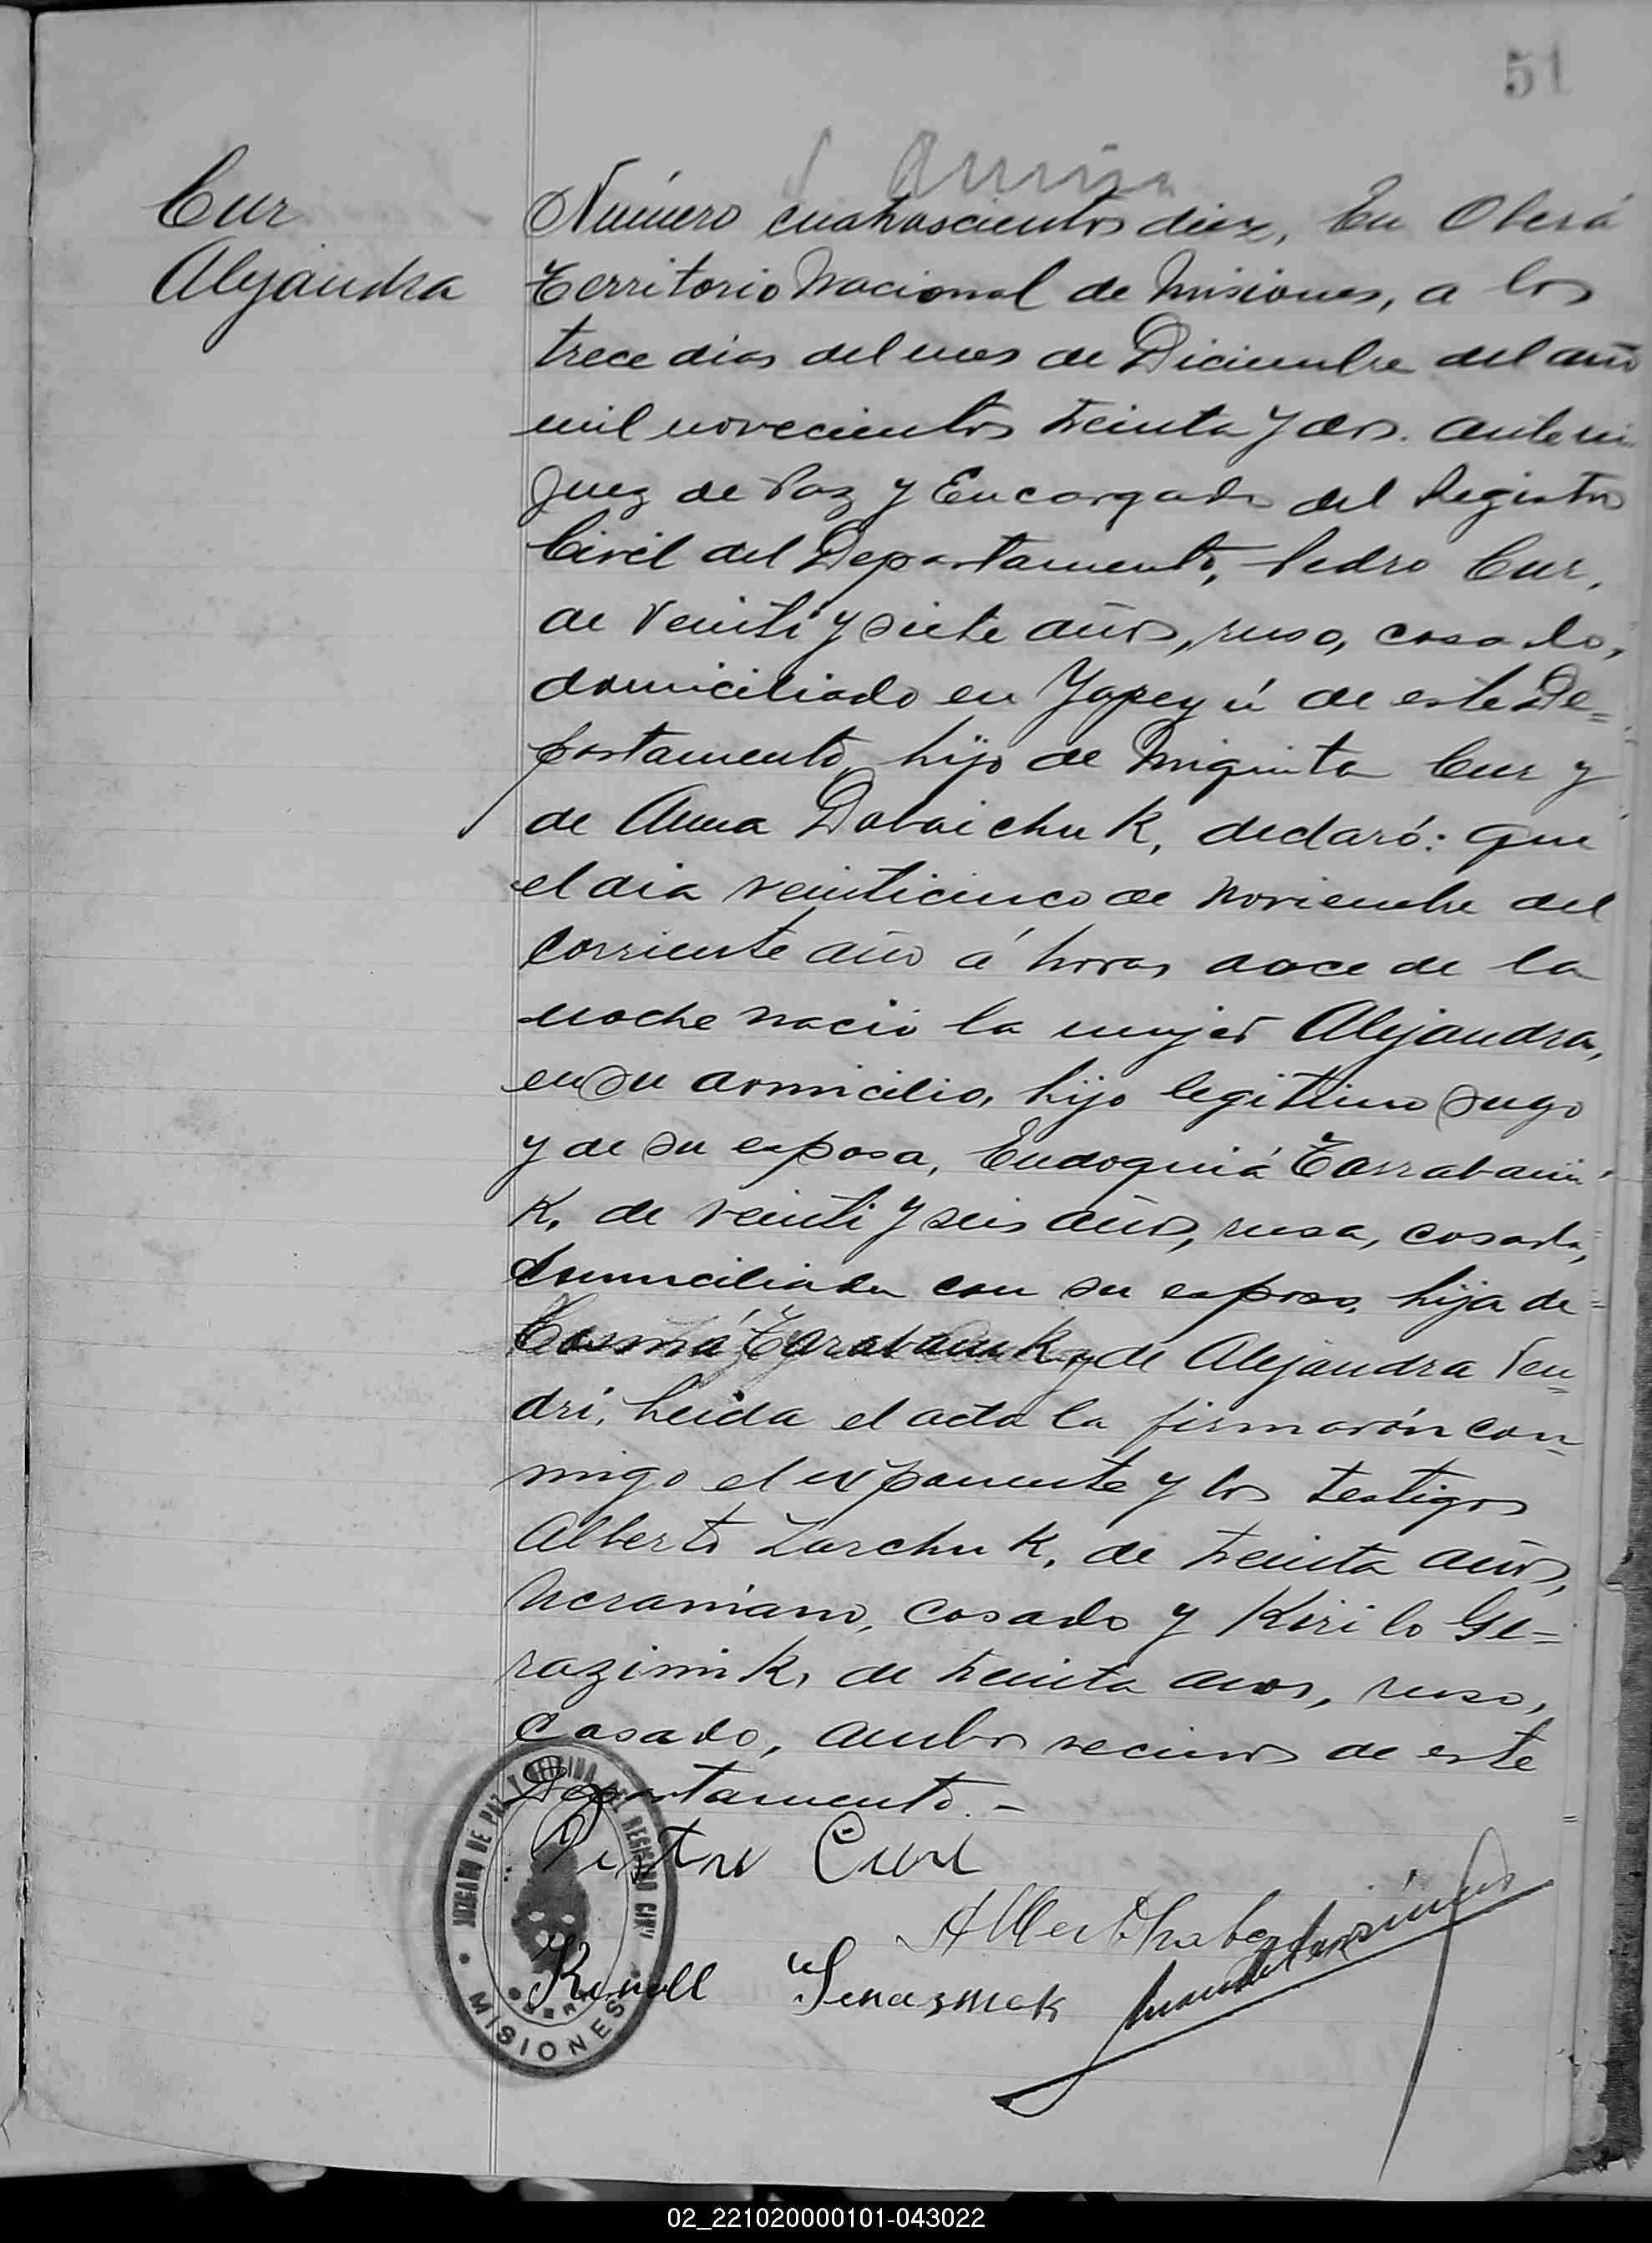 51
Cur
Alejandra
Número cuatroscientos diez, En Oberá
Territorio Nacional de Misiones, a los
trece dias del mes de Diciembre del año
mil novecientos treinta y dos. ante mi
Juez de Paz y Encargado del Registro
Civil del Departamento, Pedro Cur,
de veinti y siete años, ruso, casado,
domiciliado en Yapeyú de este De=
partamento, hijo de Miquita Cur y
de Anna Dobaichuk, declaró: que
el dia veinticinco de Noviembre del
corriente año á horas doce de la
noche nació la mujer Alejandra,
en su domicilio, hijo legitimo suyo
y de su esposa, Eudoquiá
K, de veinti y seis años, rusa, casada,
domiciliada con su esposo, hija de=
Cosmá Tarabaiuk y de Alejandra Ven=
dri, Leida el acta la firmarón con=
migo el exponente y los testigos
Alberto Larchuk, de treinta años,
Ucraniano, casado y Kirilo Ge=
razimik, de treinta años, ruso,
casado, ambos vecinos de este
Departamento.-
JUZGADO DE PAZ Y OFICINA DEL REGISTRO CIVIL
MISIONES
02_221020000101-043022